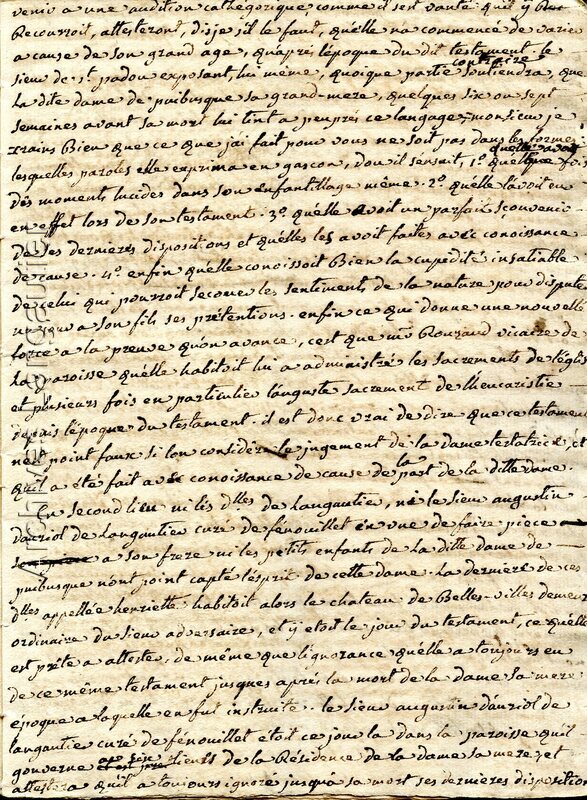 venir a une audition cathégorique, comme il s'est vanté qu'il y
Recourroit, attesteront, disje s'il le faut, quélle na commencé de varier
a cause de son grand age, quáprés l'époque du dit testament. le
sieur de st. padou exposant, lui même, quoique partie contraire soutiendra, que
La dite dame de puibusque sa grand-mere, quelques six ou sept
semaines avant sa mort lui tint a peuprés ce langage, monsieur je
crains Bien que ce que jai fait pour vous ne soit pas dans les formes
lesquelles paroles elle exprima en gascon, dou il sensuit, 1º. quélle avoit
dés moments lucides dans son enfantillage même. 2º. quélle lávoit eu
en effet lors de son testament. 3º. quélle avoit un parfait souvenir
de ses dernieres dispositions et quélles les avoit faites avec conoissance
de cause. 4º. enfin quélle conoissoit Bien la cupidité insatiable
de celui qui pourroit secouer les sentiments de la nature pour disputer
un jour a son fils ses prétentions. enfin ce qui donne une nouvelle
force a la preuve quón avance, cest que mr. Rouzaud vicaire de
La paroisse quélle habitoit lui a administré les sacrements de léglise
et plusieurs fois en particulier láuguste sacrement de léucaristie
depuis lépoque du testament. il est donc vrai de dire que ce testament
nest point faux si lon considére le jugement de la dame testatrice, et
quil a été fait avec conoissance de cause de la part de la ditte dame.
En second lieu ni les dlles de Langautier, ni le sieur augustin
dauriol de Langautier curé de fénouillet en vue de faire piece
a son frere ni les petits enfants de la ditte dame de
puibusque nónt point capté lésprit de cette dame. La derniere de ces
dlles appellée henriette habitoit alors le chateau de Belles-villes demeure
ordinaire du sieur adversaire, et y étoit le jour du testament, ce quélle
est préte a attester, de même que lignorance quélle a toujours eu
de ce même testament jusques aprés la mort de la dame sa mere
époque a laquelle en fut instruite. le sieur augustin dáuriol de
langautier curé de fénouillet étoit ce jour la dans la paroisse quíl
gouverne lieues de la Résidence de la dame sa mere, et
attestera quíl a toujours ignoré jusquá sa mort ses dernieres dispositions